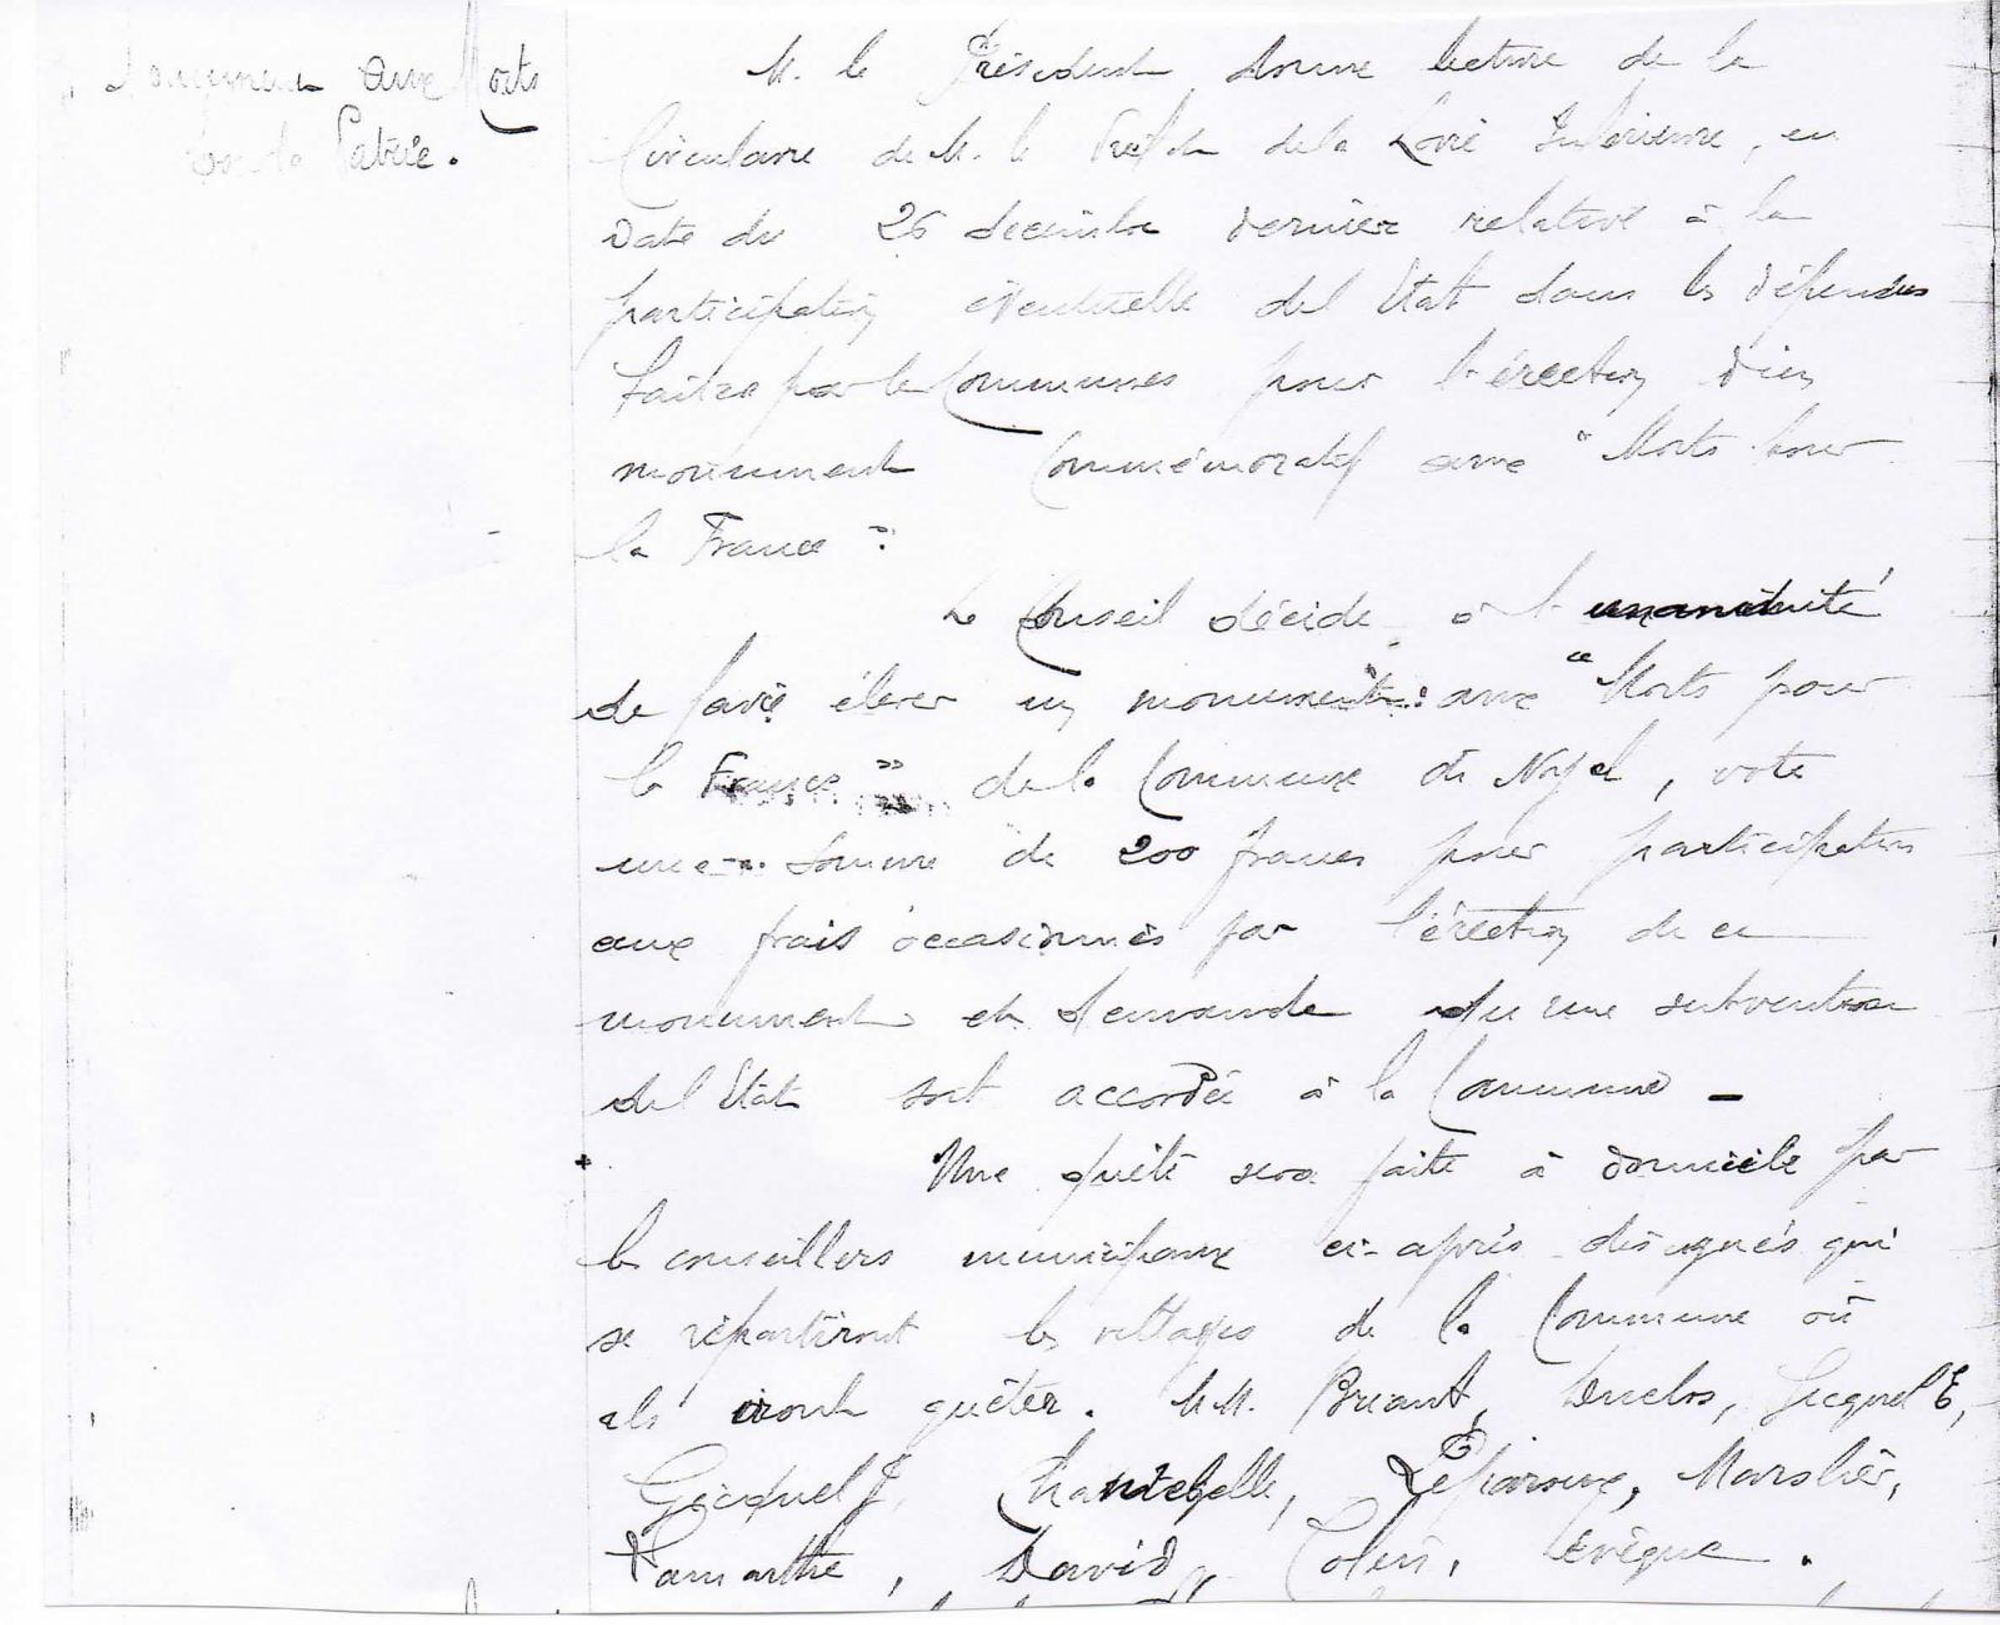 Monument aux Morts
pour la Patrie.
M. le Président donne lecture de la
Circulaire de M. le Préfet de la Loire Inférieure, en
date du 26 décembre dernier relative à la
participation éventuelle de l'Etat dans les dépenses
faites par les Communes pour l'érection d'un
monument Commémoratif aux "Morts pour
la France".
Le Conseil décide à l'unanimité
de faire élever un monument aux "Morts pour
la France" de la Commune de Noyal, vote
une somme de 200 francs pour participation
aux frais occasionnés par l'érection de ce
monument et demande qu'une subvention
de l'Etat soit accordée à la Commune -
Une quête sera faite à domicile par
les conseillers municipaux ci-après désignés qui
se répartiront les villages de la Commune où
ils iront quêter. MM. Briant, Duclos, Gicquel E,
Gicquel J, Chantebelle, Leparoux, Marslier,
Lamarthe, David, Colin, Evêque.